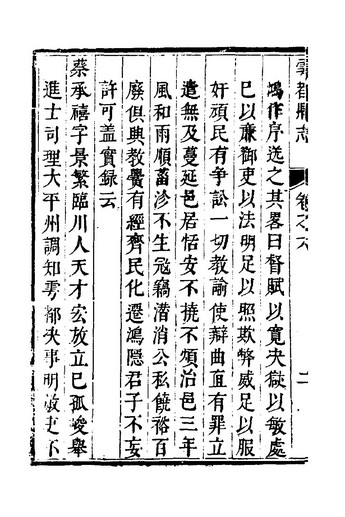 雩都縣志
卷之六
二
鴻作序送之其畧曰督賦以寬夬獄以敏處
已以亷御吏以法明足以照欺弊威足以服
奸頑民有爭訟一切教諭使辯曲直有罪立
遣無及蔓延邑居恬安不撓不煩治邑三年
風和雨順畜沴不生冦竊潜消公私饒裕百
廢俱興教黌有經齊民化遷鴻隠君子不妄
許可盖實錄云
蔡承禧字景繁臨川人天才宏放立已孤峻舉
進士司理太平州調知雩都夬事明敏吏不